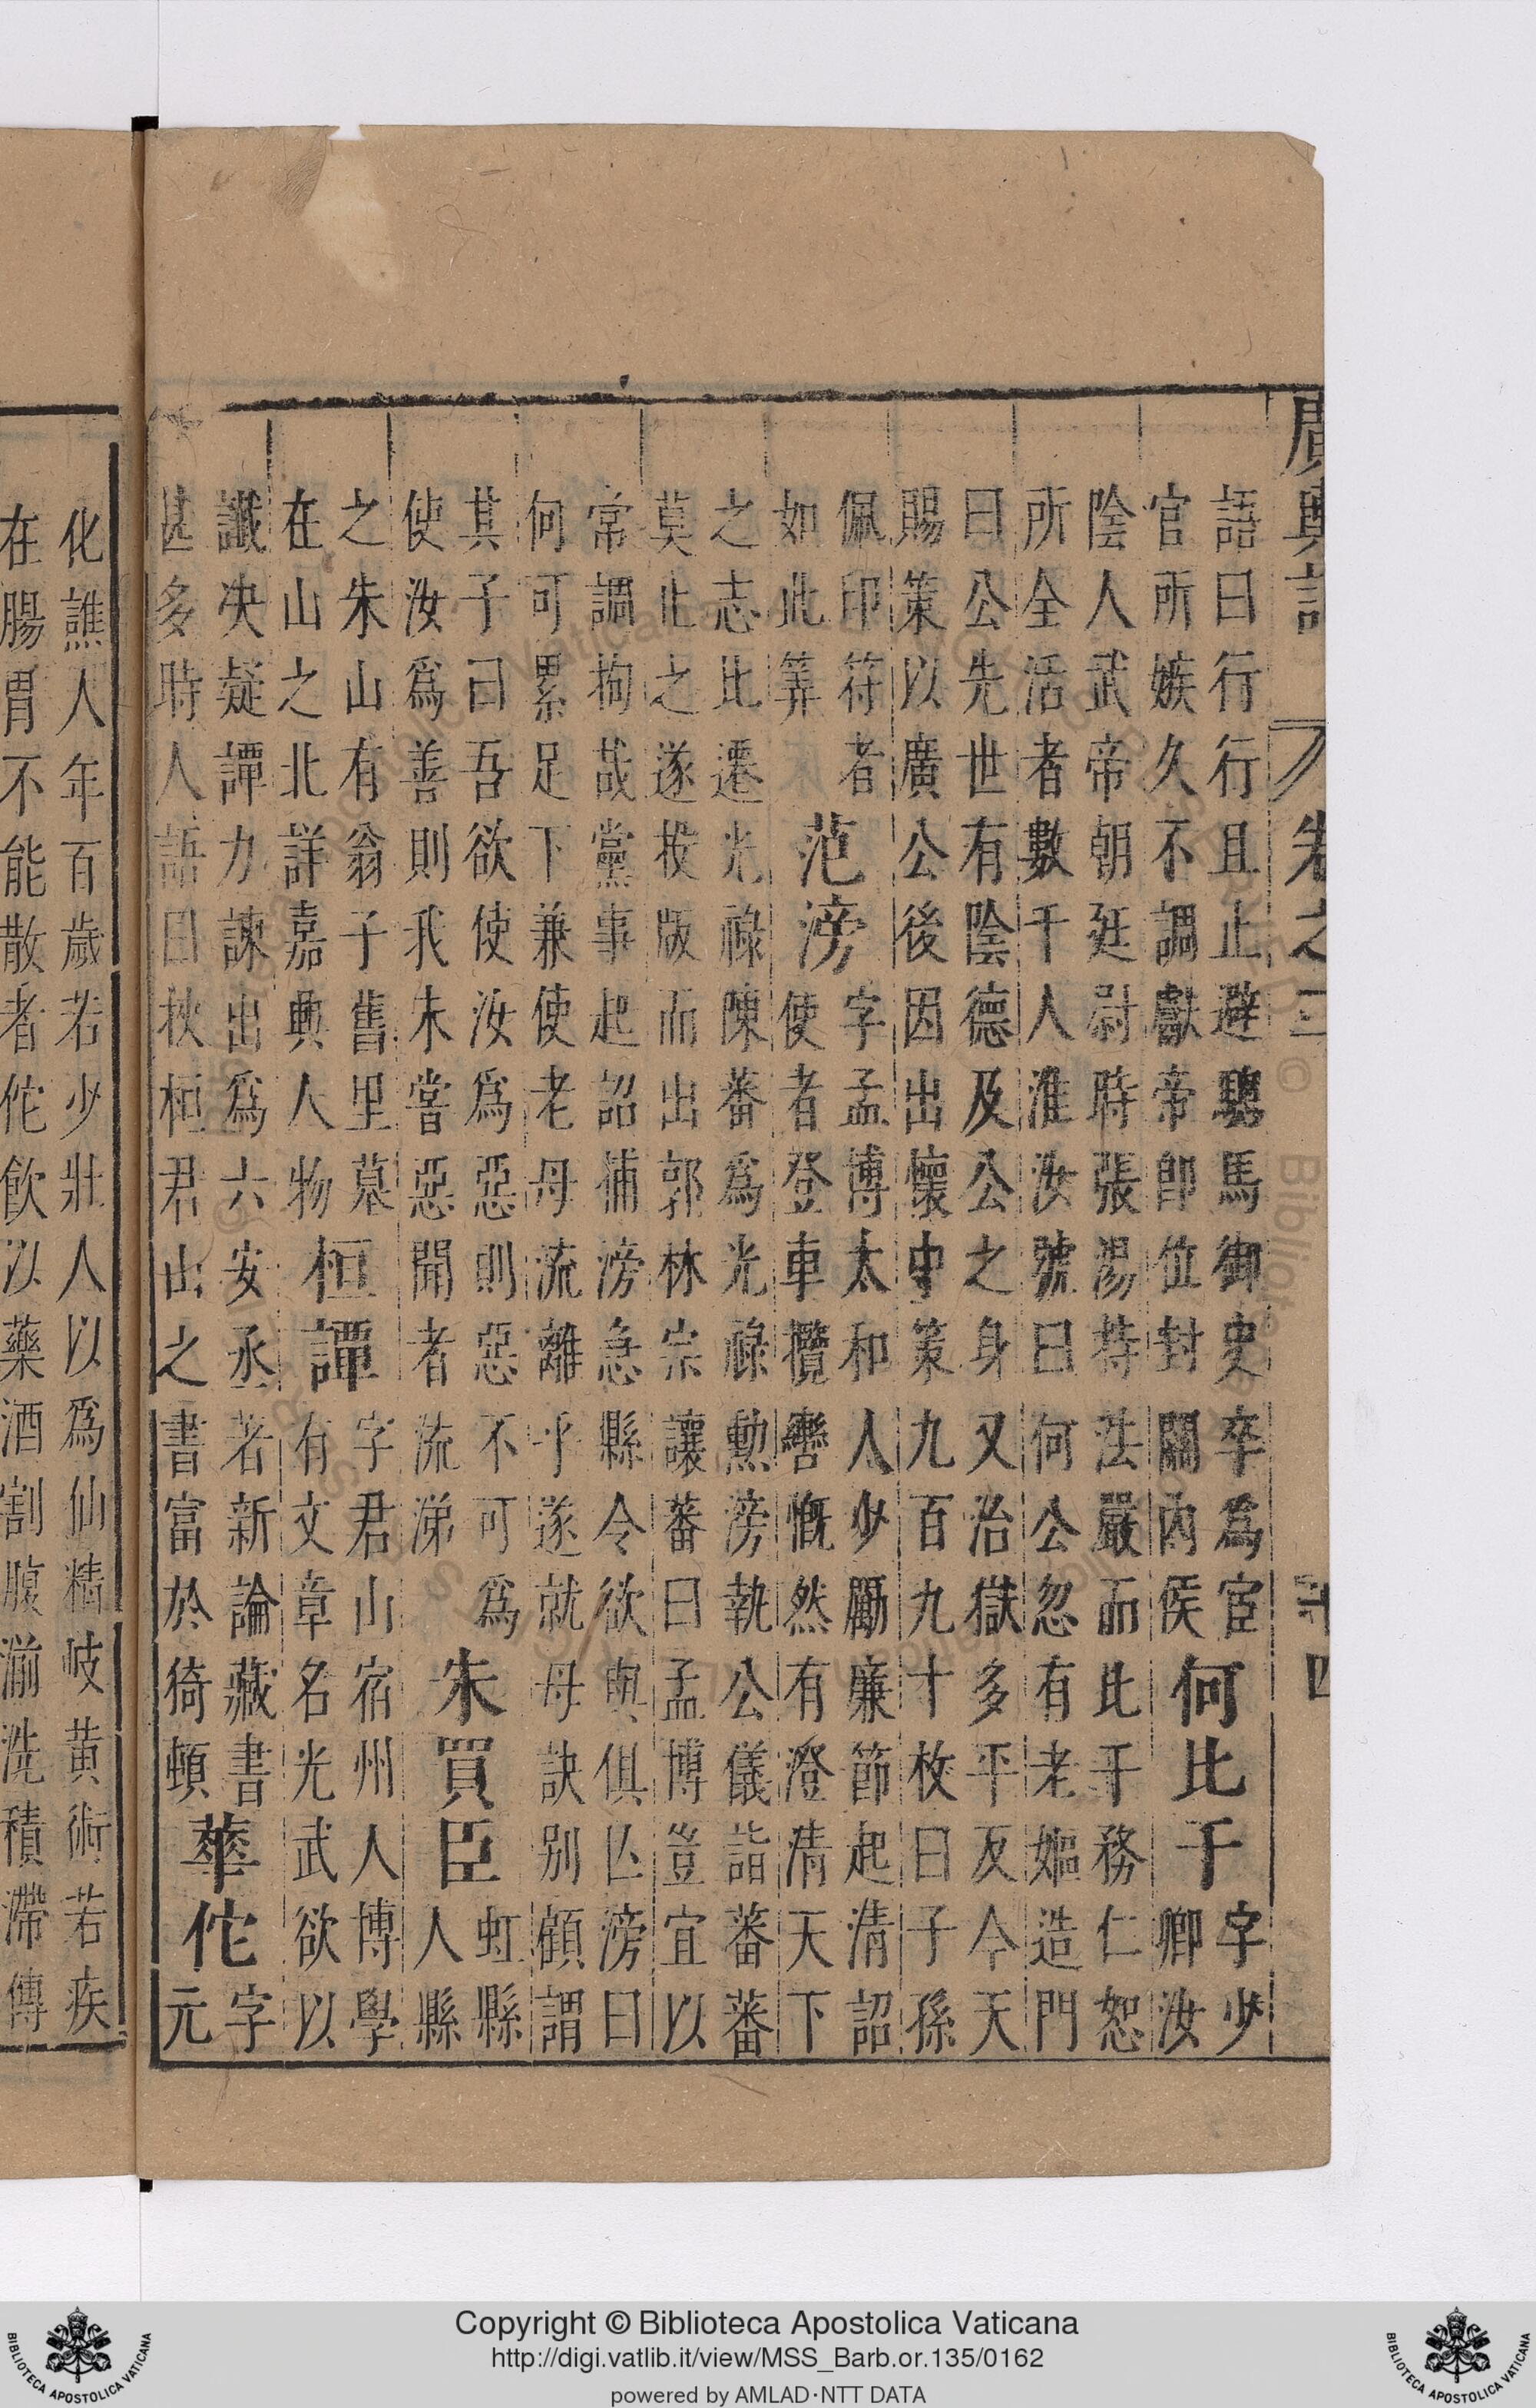 廣輿記 卷之三 二十四
語曰行行且止避驄馬御史卒爲宦
官所嫉久不調獻帝即位封關內侯
何比干
字少
卿汝
陰人武帝朝廷尉時張湯持法嚴而比干務仁恕
所全活者數千人淮汝號曰何公忽有老嫗造門
曰公先世有陰德及公之身又治獄多平反今天
賜策以廣公後因出懷中策九百九十枚曰子孫
佩印符者
如此筭
范滂
字孟博太和人少勵廉節起清詔
使者登車攬轡慨然有澄清天下
之志比遷光祿陳蕃爲光祿勲滂執公儀詣蕃蕃
莫止之遂投版而出郭林宗讓蕃曰孟博豈宜以
常調拘哉黨事起詔捕滂急縣令欲與俱亾滂曰
何可累足下兼使老母流離乎遂就母訣別顧謂
其子曰吾欲使汝爲惡惡則惡不可爲
使汝爲善則我未嘗惡聞者流涕
朱買臣
虹縣
人縣
之朱山有翁子舊里墓
在山之北詳嘉興人物
桓譚
字君山宿州人博學
有文章名光武欲以
讖决疑譚力諫出爲六安丞著新論藏書
甚多時人語曰挾桓君山之書富於猗頓
華佗
字
元
化譙人年百歲若少壯人以爲仙精岐黄術若疾
在腸胃不能散者佗飲以藥酒割腹湔洗積滯傳
Copyright © Biblioteca Apostolica Vaticana
http://digi.vatlib.it/view/MSS_Barb.or.135/0162
powered by AMLAD·NTT DATA
BIBLIOTECA APOSTOLICA VATICANA
BIBLIOTECA APOSTOLICA VATICANA